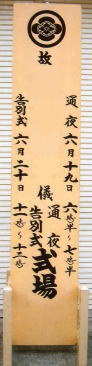 故
通夜 六月十九日 六時半～七時半
告別式 六月二十日 十一時～十二時
儀
通夜
告別式
式場